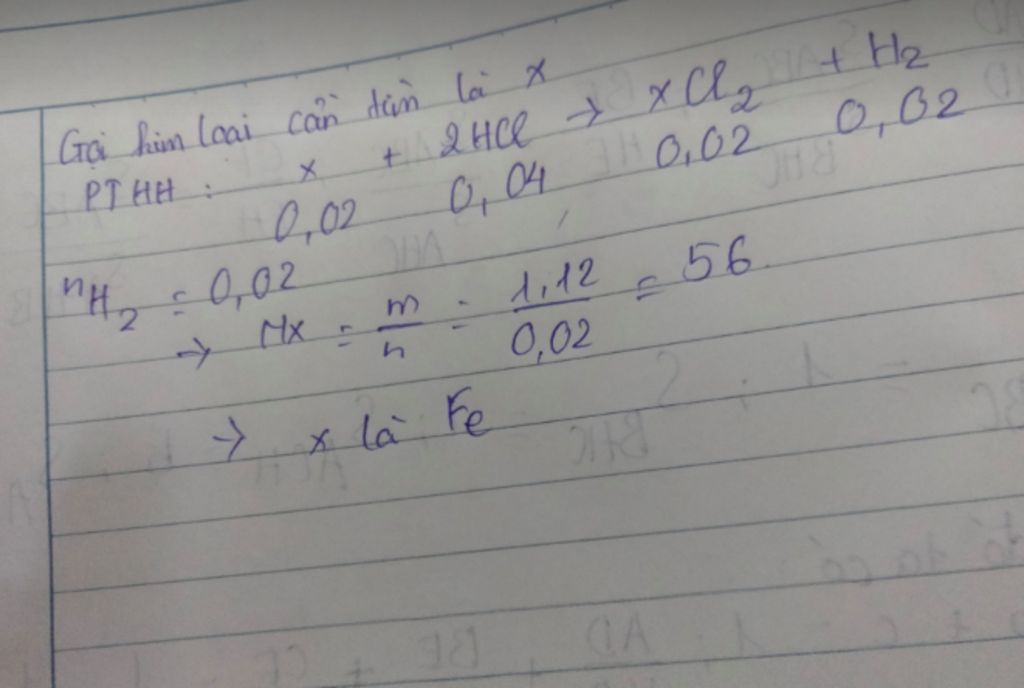 Gọi kim loại cần tìm là x
PTHH: x + 2HCl → xCl2 + H2
0,02 0,04 0,02 0,02
nH2 = 0,02
→ Mx = m/n = 1,12/0,02 = 56
→ x là Fe